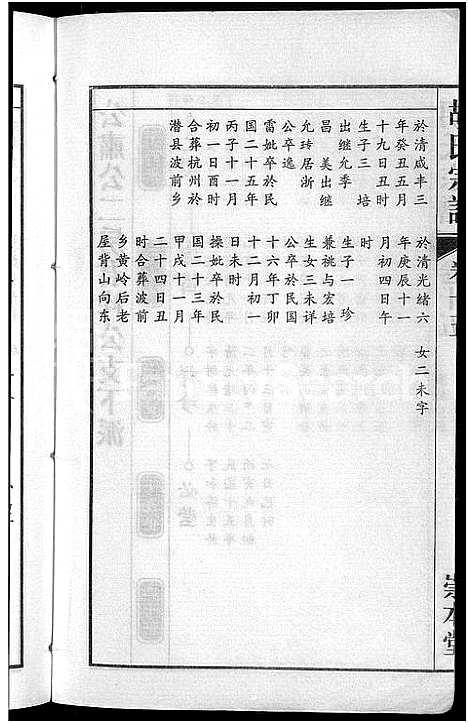 胡氏宗譜
崇本堂
於清咸丰三
年癸丑五月
十九日丑时
生子三 培
出继允季
昌 美出继
允玲居浙
公卒逸
雷妣卒於民
国二十五年
丙子十一月
初一日酉时
合葬杭州於
潜县波前乡
於清光绪六
年庚辰十一
月初四日午
时
生子一 珍
兼祧与宏培
生女三未详
公卒於民国
十六年丁卯
十二月初一
日未时
操妣卒於民
国二十三年
甲戌十一月
二十四日丑
时合葬波前
乡黄岭后老
屋背山向东
女二未字